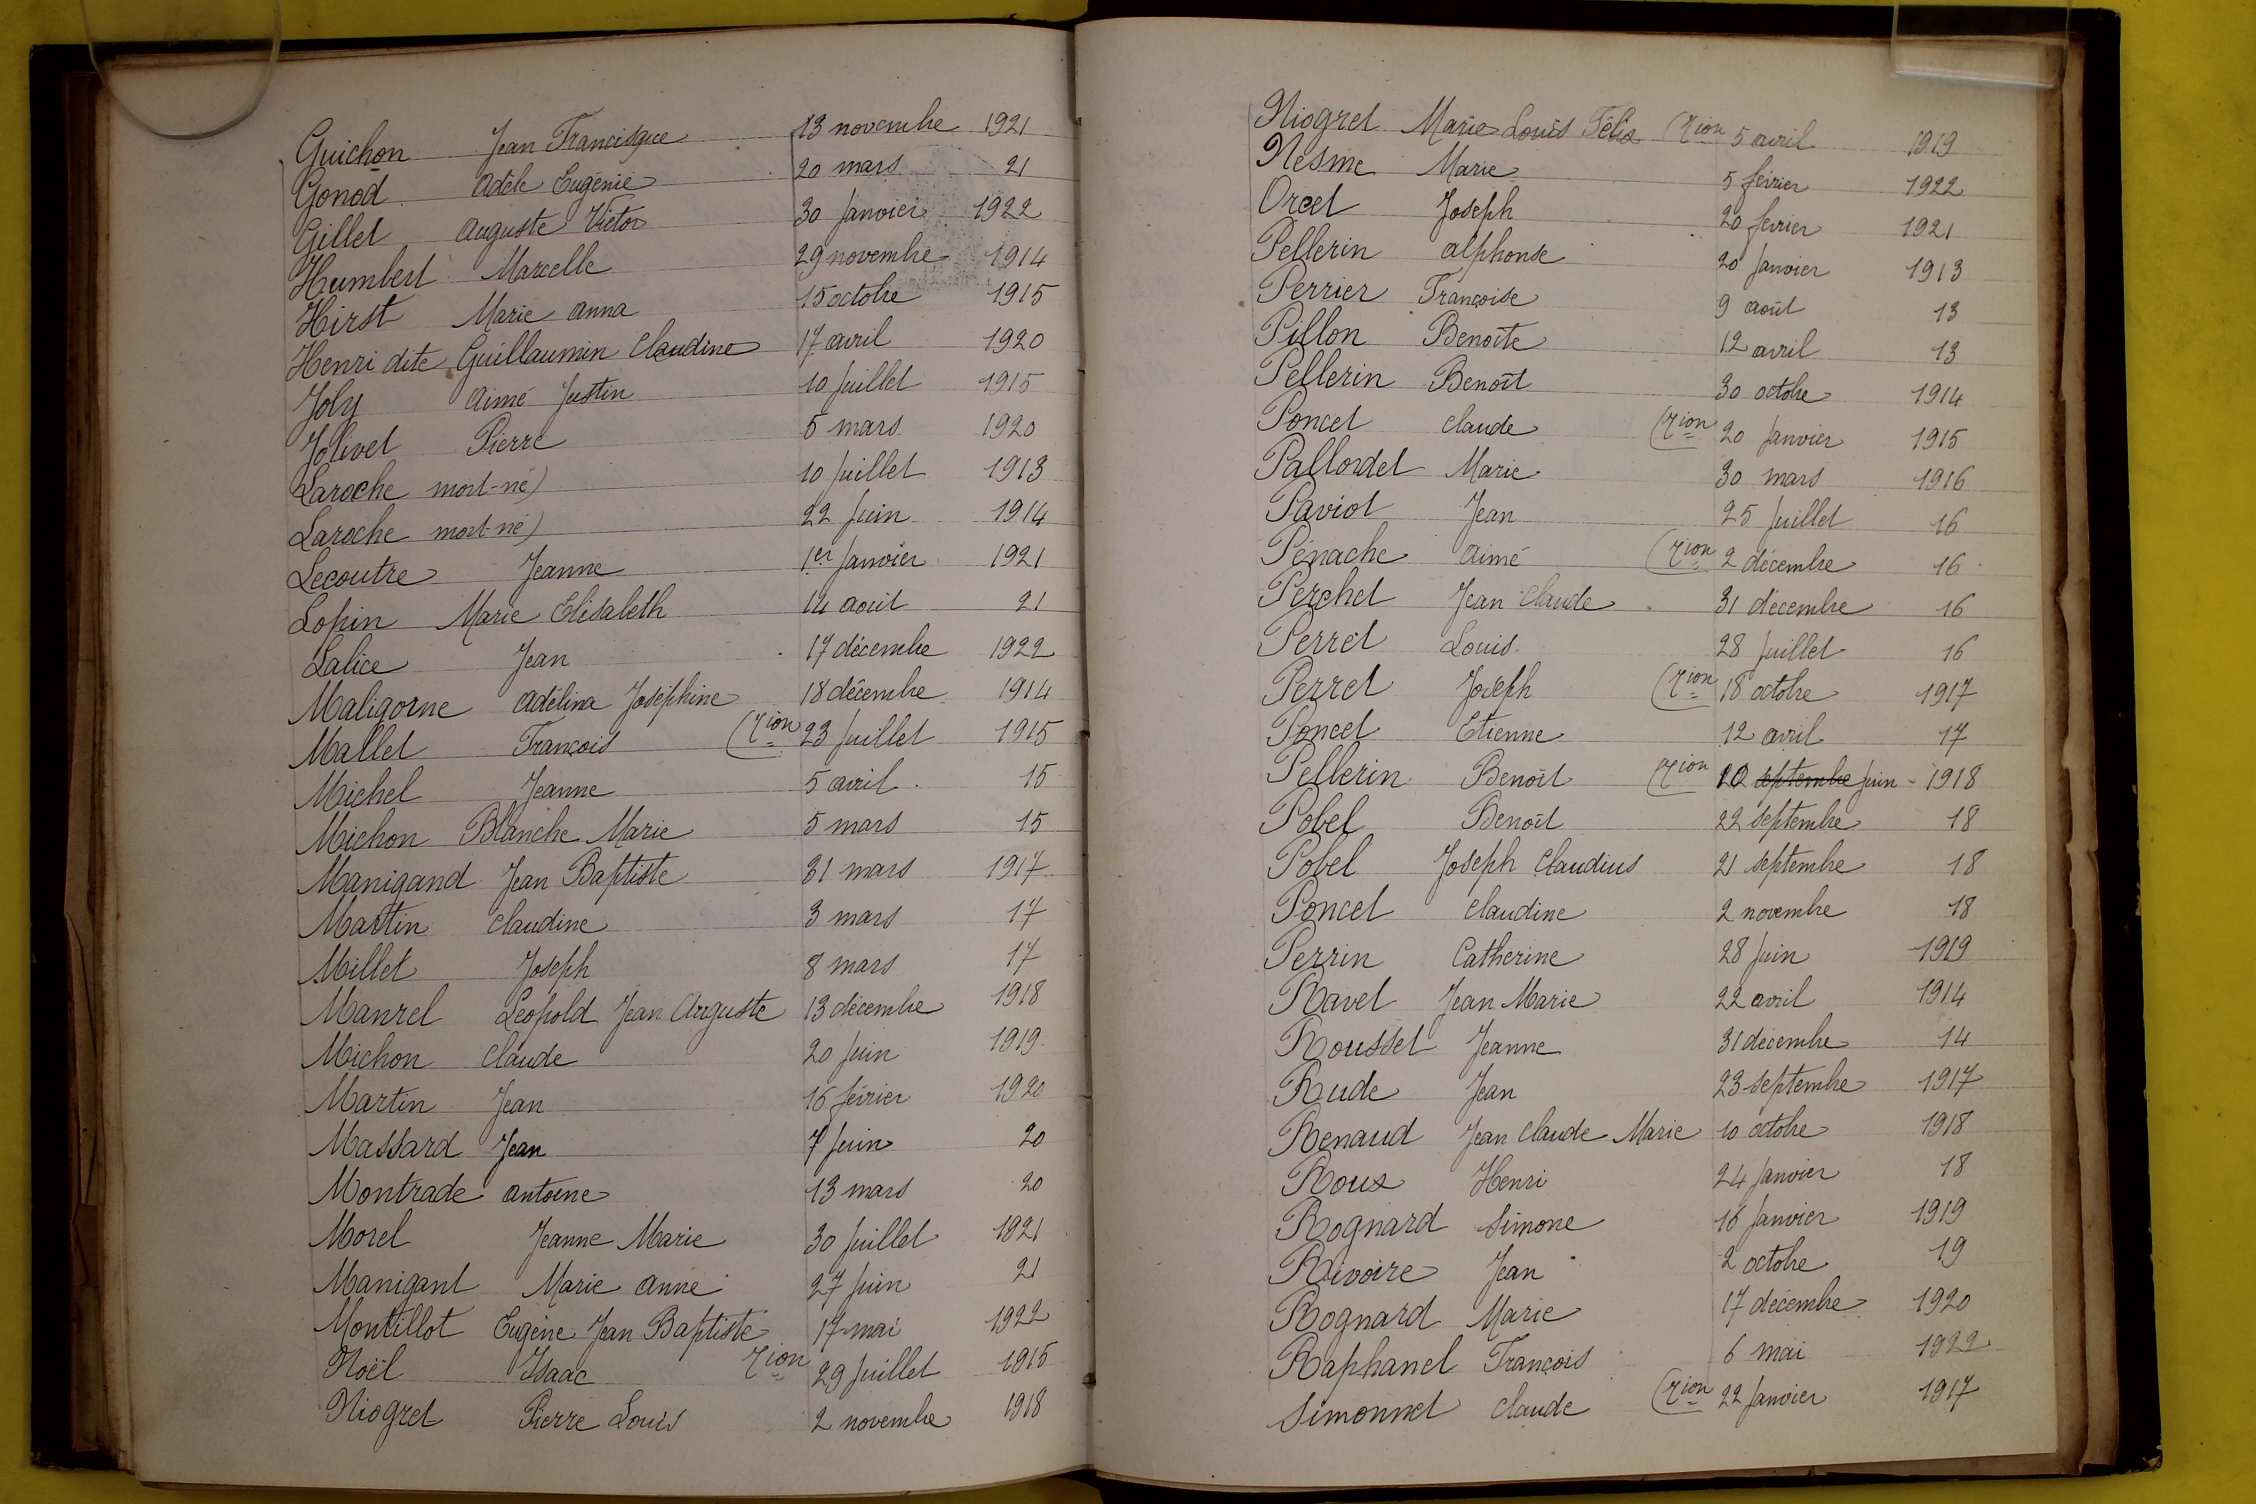 Guichon Jean Francisque 13 novembre 1921
Gonod Adèle Eugénie 20 mars 21
Gillet Auguste Victor 30 Janvier 1922
Humbert Marcelle 29 novembre 1914
Hirst Marie Anna 15 octobre 1915
Henri dite Guillaumin Claudine 17 avril 1920
Joly Aimé Justin 10 Juillet 1915
Jolivet Pierre 5 mars 1920
Laroche mort-né) 10 Juillet 1913
Laroche mort-né) 22 Juin 1914
Lecoutre Jeanne 1er Janvier 1921
Lopin Marie Elisabeth 14 août 21
Lalice Jean 17 décembre 1922
Maligorne Adélina Joséphine 18 décembre 1914
Mallet François (Tion 23 Juillet 1915
Michel Jeanne 5 avril 15
Michon Blanche Marie 5 mars 15
Manigand Jean Baptiste 31 mars 1917
Martin Claudine 3 mars 17
Millet Joseph 8 mars 17
Manrel Léopold Jean Auguste 13 décembre 1918
Michon Claude 20 Juin 1919
Martin Jean 16 février 1920
Massard Jean 7 Juin 20
Montrade Antoine 13 mars 20
Morel Jeanne Marie 30 Juillet 1921
Manigant Marie Anne 27 Juin 21
Montillot Eugène Jean Baptiste 17 mai 1922
Noël Isaac Tion 29 Juillet 1915
Niogret Pierre Louis 2 novembre 1918
Niogret Marie Louis Félix (Tion 5 avril 1919
Nesme Marie 5 février 1922
Orcet Joseph 20 février 1921
Pellerin Alphonse 20 Janvier 1913
Perrier Françoise 9 août 13
Pillon Benoîte 12 avril 13
Pellerin Benoît 30 octobre 1914
Poncet Claude (Tion 20 Janvier 1915
Pallordet Marie 30 mars 1916
Paviot Jean 25 Juillet 16
Pénache Aimé (Tion 2 décembre 16
Perchet Jean Claude 31 décembre 16
Perret Louis 28 Juillet 16
Perret Joseph (Tion 18 octobre 1917
Poncet Etienne 12 avril 17
Pellerin Benoît (Tion 10 septembre Juin 1918
Pobel Benoît 22 septembre 18
Pobel Joseph Claudius 21 septembre 18
Poncet Claudine 2 novembre 18
Perrin Catherine 28 Juin 1919
Ravet Jean Marie 22 avril 1914
Rousset Jeanne 31 décembre 14
Rude Jean 23 septembre 1917
Renaud Jean Claude Marie 10 octobre 1918
Roux Henri 24 Janvier 18
Rognard Simone 16 Janvier 1919
Rivoire Jean 2 octobre 19
Rognard Marie 17 décembre 1920
Raphanel François 6 mai 1922
Simonnet Claude (Tion 22 Janvier 1917